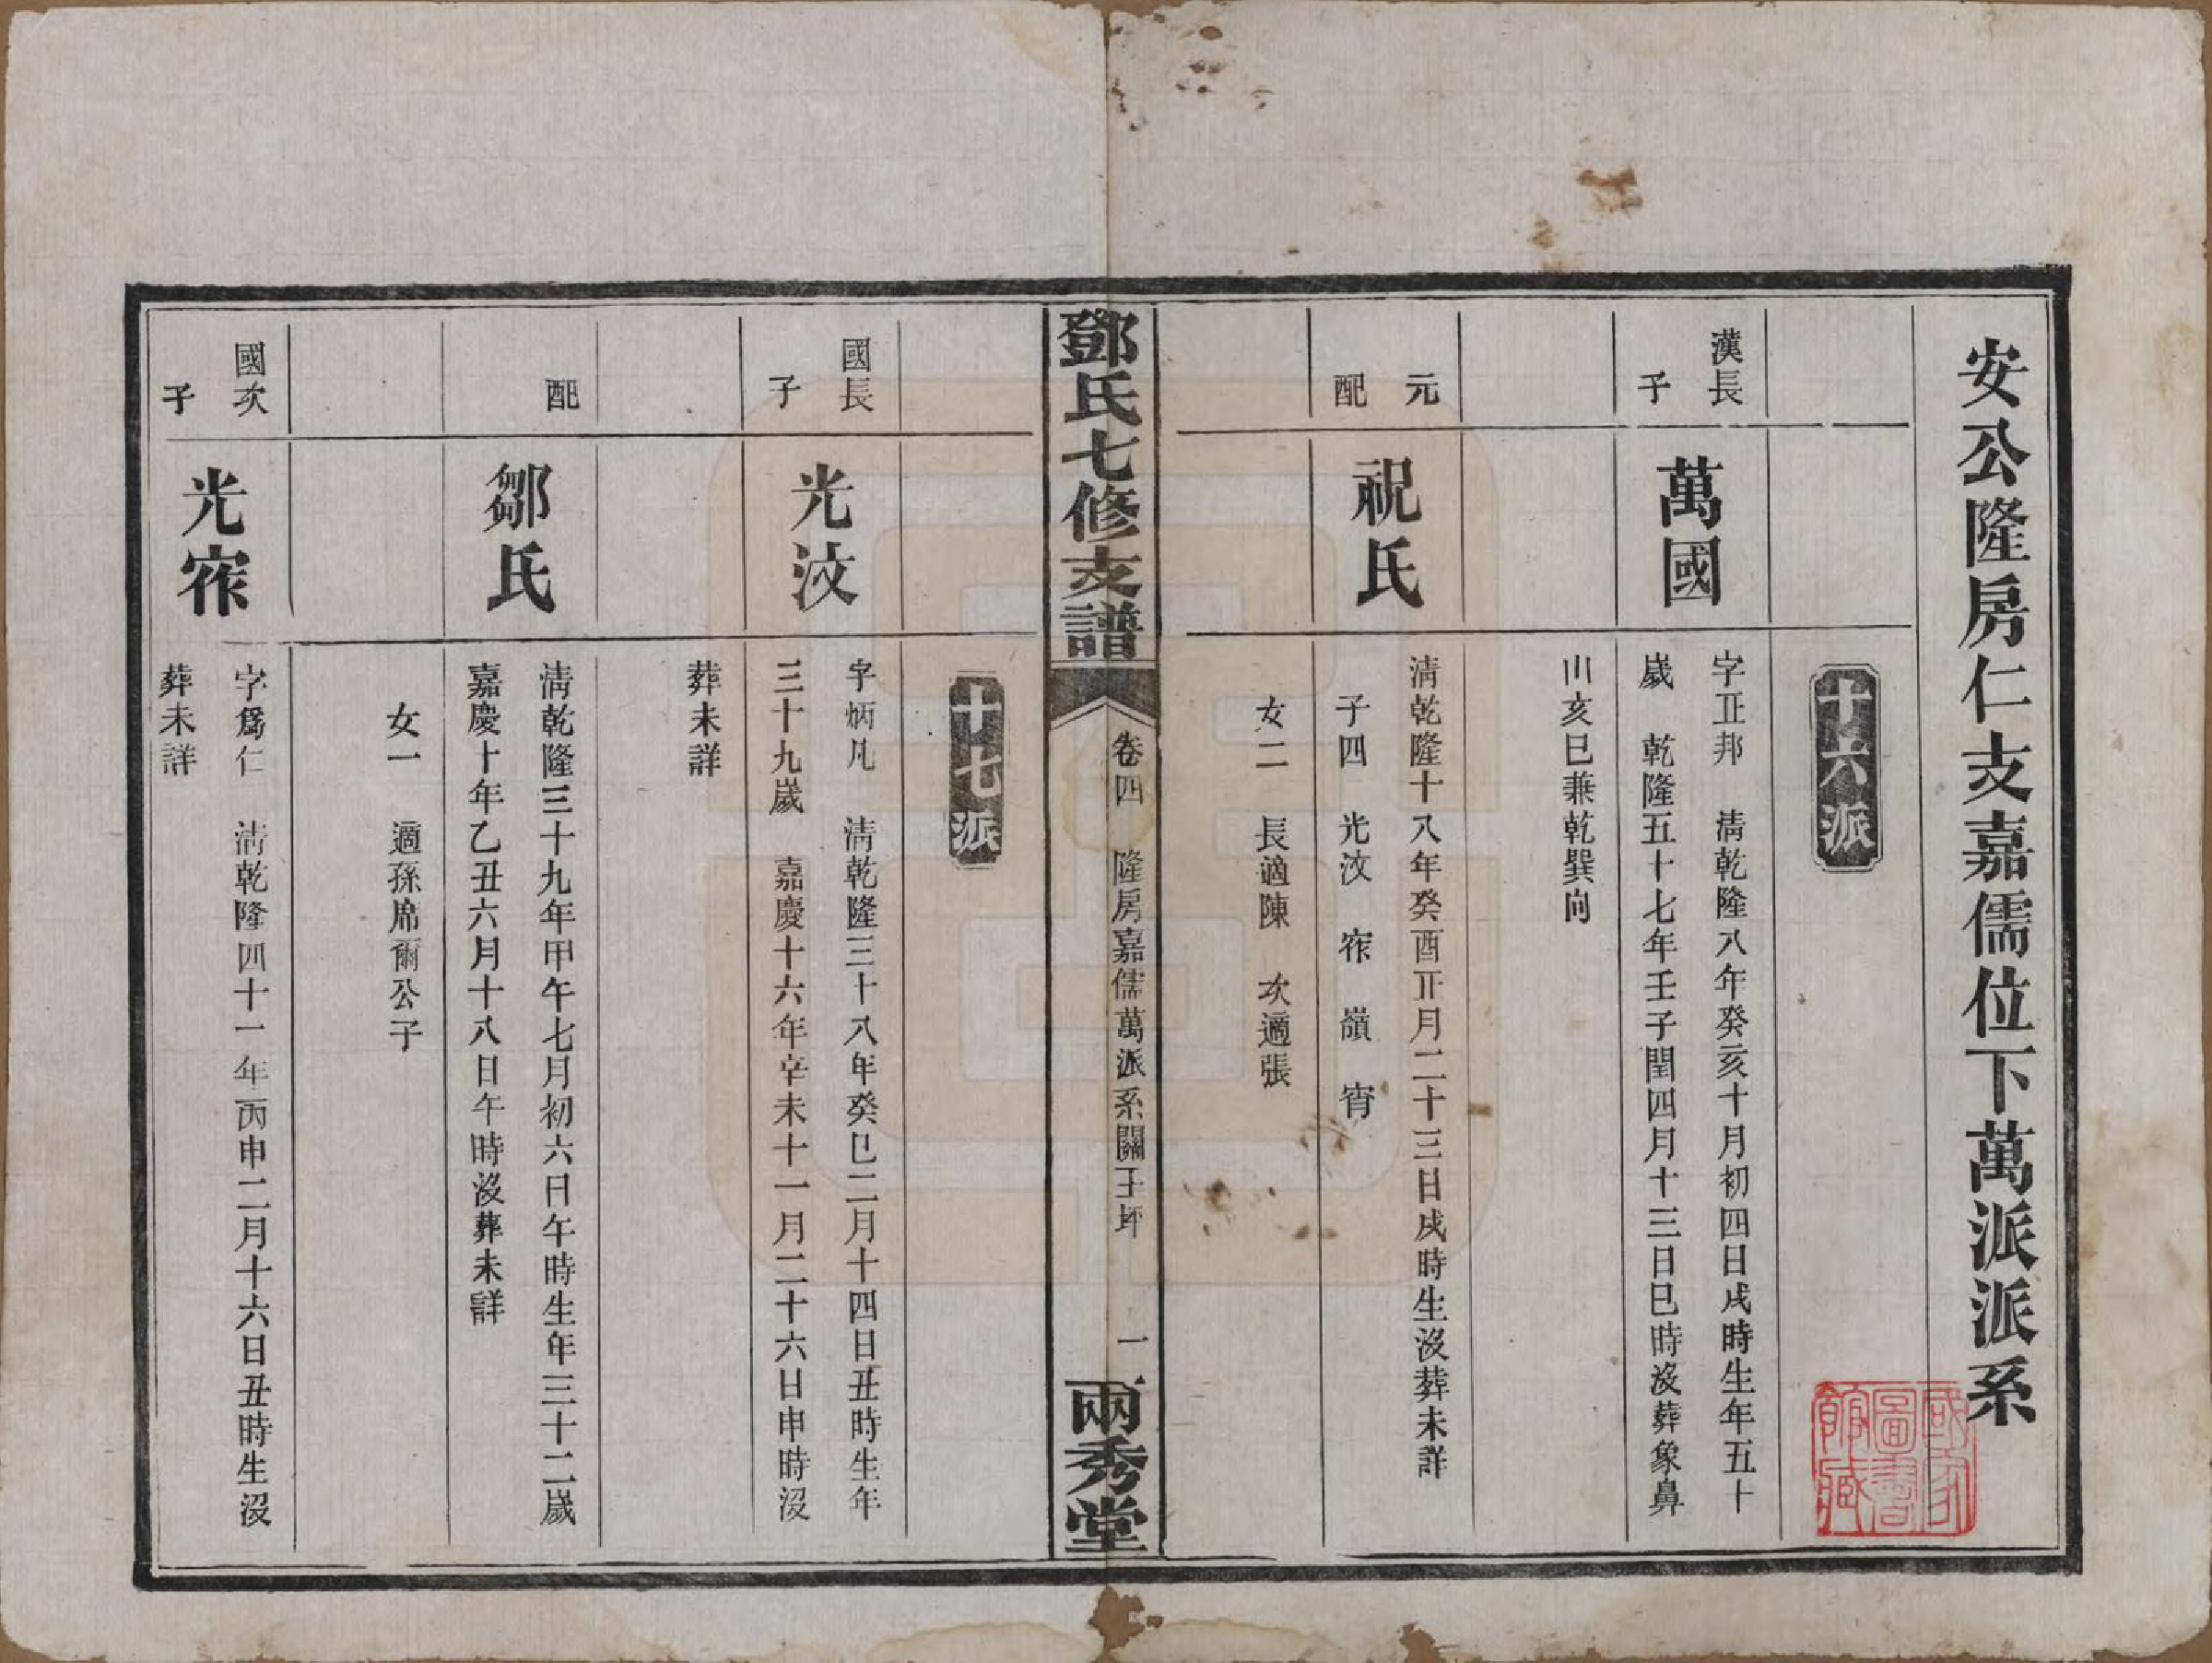 安公隆房仁支嘉儒位下萬派派系
十六派
漢長
子
萬國
字正邦　清乾隆八年癸亥十月初四日戌時生年五十
歲　乾隆五十七年壬子閏四月十三日巳時沒葬象鼻
山亥巳兼乾巽向
元
配
祝氏
清乾隆十八年癸酉正月二十三日戌時生沒葬未詳
子四　光汶　䆲　嶺　宵
女二　長適陳　次適張
鄧氏七修支譜
卷四　隆房嘉儒萬派系關王坪
一
兩秀堂
十七派
國長
子
光汶
字炳凡　清乾隆三十八年癸巳二月十四日丑時生年
三十九歲　嘉慶十六年辛未十一月二十六日申時沒
葬未詳
配
鄒氏
清乾隆三十九年甲午七月初六日午時生年三十二歲
嘉慶十年乙丑六月十八日午時沒葬未詳
女一　適孫席爾公子
國次
子
光䆲
字爲仁　清乾隆四十一年丙申二月十六日丑時生沒
葬未詳
國家
圖書
館藏